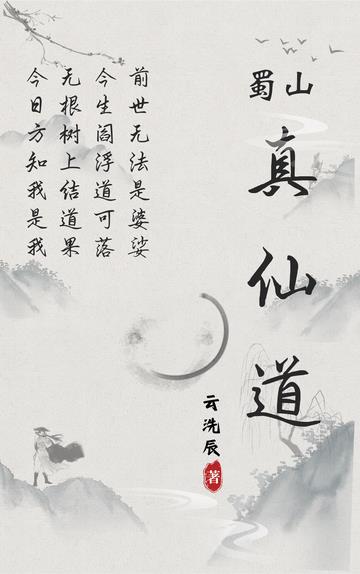 蜀山
真仙道
云洗辰
著
前世无法是婆娑
今生阎浮道可落
无根树上结道果
今日方知我是我